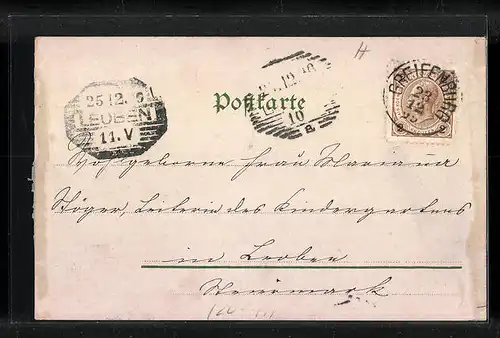 H
25.12.9
LEOBEN
11.V
12
10
a
GREIFENBURG
23
12
Postkarte
Wohlgeborne Frau Maria von
Stöger, Leiterin des Kindergartens
in Leoben
Steiermark